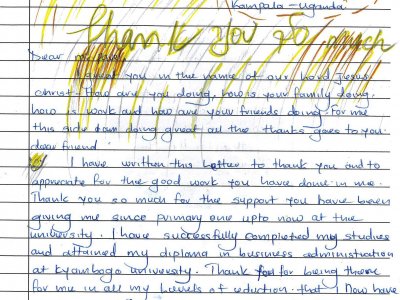 Kampala - Uganda
Thank you so much
Dear
I greet you in the name of our Lord Jesus
christ. How are you doing, how is your family doing,
how is work and how are your friends doing. for me
this side dam doing great all the thanks goes to you
dear friend
I have written this Letter to thank you and to
appreciate for the good work you have done in me.
Thank you so much for the support you have been
giving me since primary one upto now at the
university. I have successfully completed my studies
and attained my diploma in business administration
at kyambogo university. Thank you for being there
for me in all my levels of eduction. that Now have